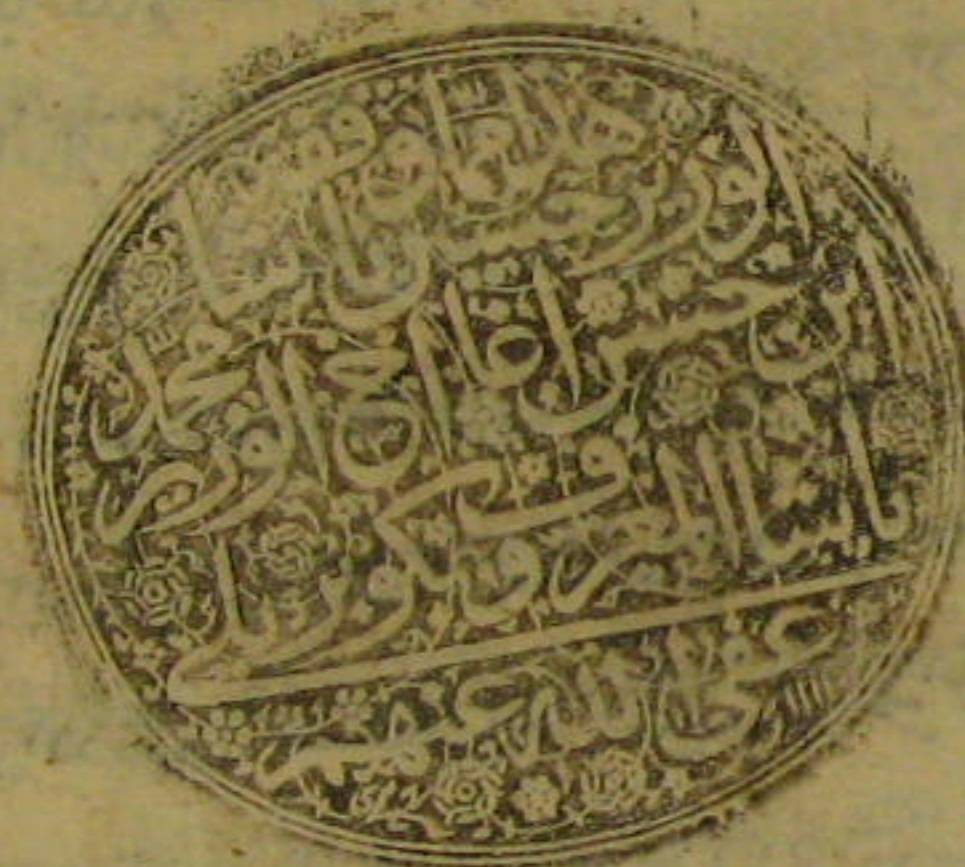 هذا وقفه
الوزير حسين پاشا
ابن حسن اغا اخ الوزير محمد
پاشا المعروف بكوپريلى
عفى الله عنهم